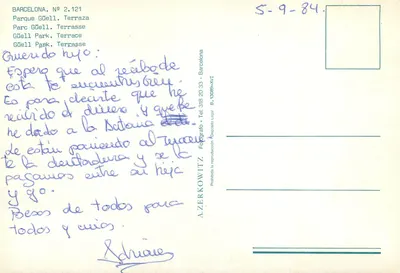 BARCELONA, Nº 2.121
Parque Güell. Terraza
Parc Güell. Terrasse
Güell Park. Terrace
Güell Park. Terrasse
5-9-84.
Querido hijo:
Espero que al recibo de
esta te encuentres bien.
Es para decirte que he
recibido el dinero y que
he dado a la
de están poniendo al
te la dentadura y se la
pagamos entre su hija
y yo.
Besos de todos para
todos y míos.
A. ZERKOWITZ Fotógrafo - Tel. 318 20 33 - Barcelona